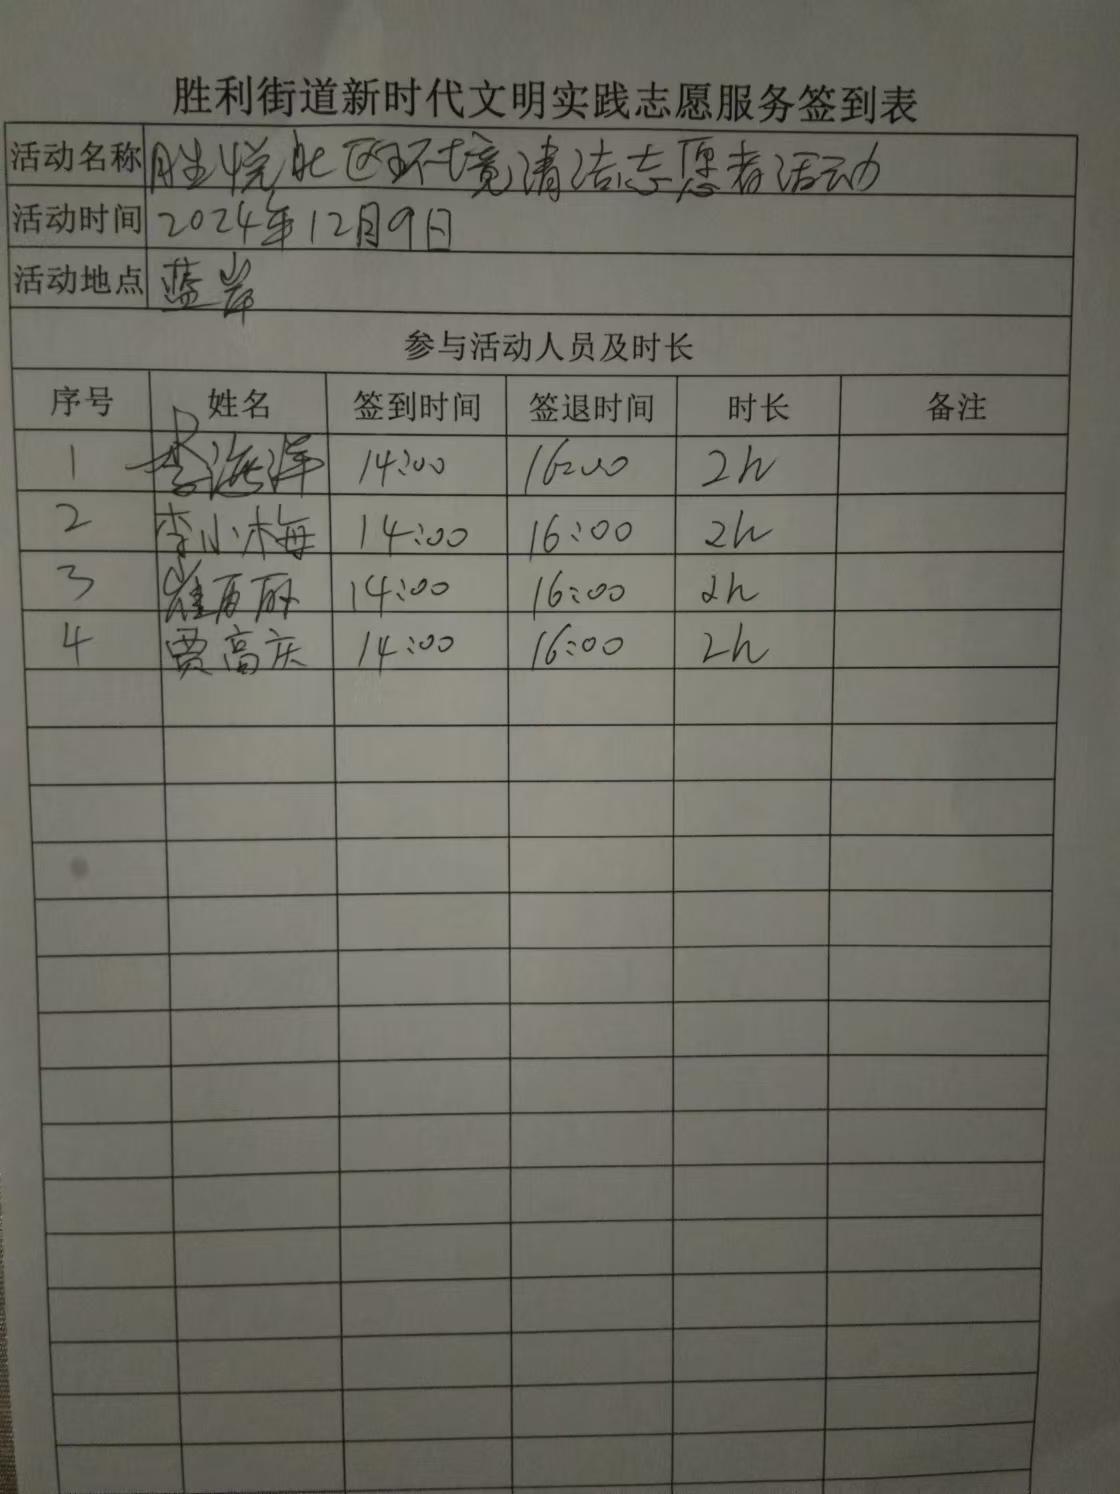 胜利街道新时代文明实践志愿服务签到表
活动名称 胜悦北区环境清洁志愿者活动
活动时间 2024年12月9日
活动地点 蓝岸
参与活动人员及时长
序号 姓名 签到时间 签退时间 时长 备注
1 李海洋 14:00 16:00 2h
2 李小梅 14:00 16:00 2h
3 崔 14:00 16:00 2h
4 贾高庆 14:00 16:00 2h